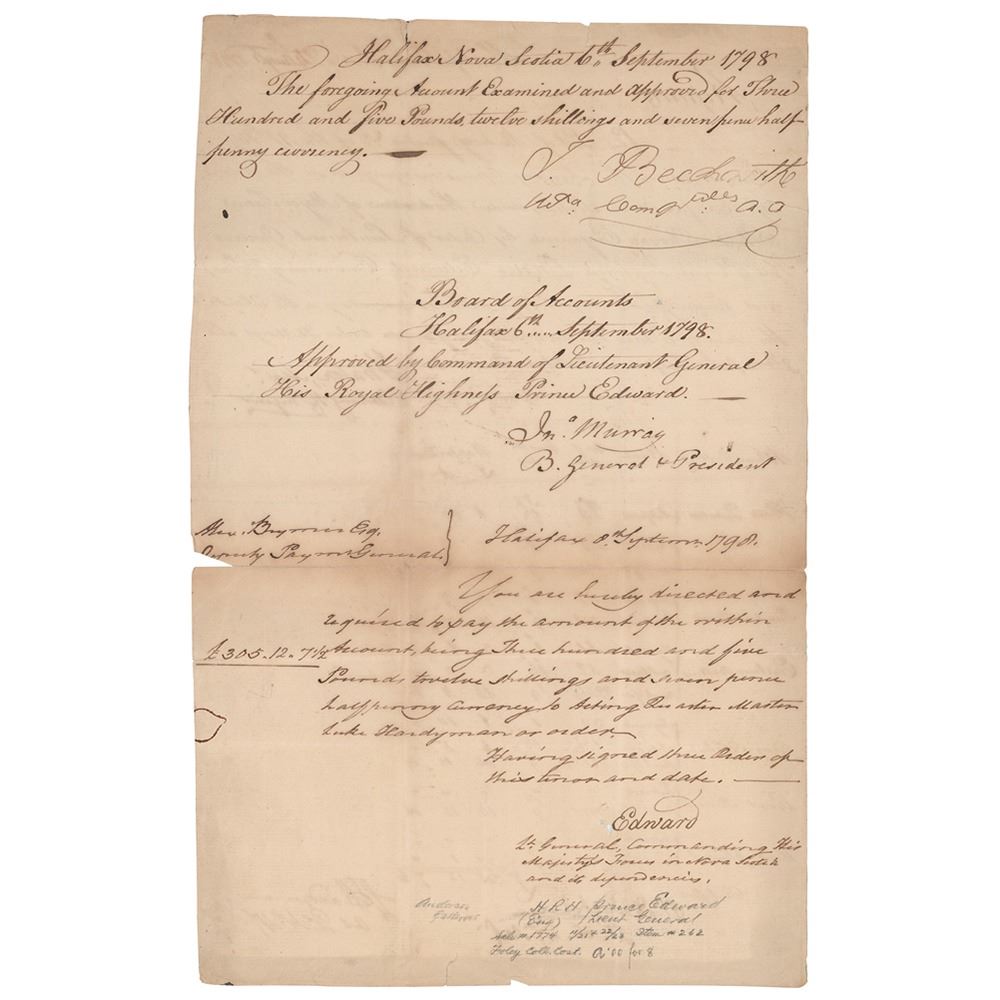 Halifax Nova Scotia 6th September 1798
The foregoing Account Examined and approved for Three
Hundred and five Pounds, twelve shillings and seven pence half
penny currency.
T. Beckwith
Board of Accounts
Halifax 6th September 1798.
Approved by Command of Lieutenant General
His Royal Highness Prince Edward.
Jno. Murray
B. General & President
Esq.
Deputy Paym. General.
Halifax 8th Septemr. 1798.
You are hereby directed and
required to pay the amount of the within
£305.12.7½ Account, being Three hundred and five
Pounds twelve shillings and seven pence
halfpenny Currency to Acting Quarter Master
Luke Hardyman or order
Having signed three Orders of
this tenor and date.
Edward
Lt. General, Commanding His
Majesty's Forces in Nova Scotia
and its dependencies.
Anderson
Galleries
H R H Prince Edward
(Eng) Lieut General
Sale # 1774 Item # 262
Foley Coll. Cat.